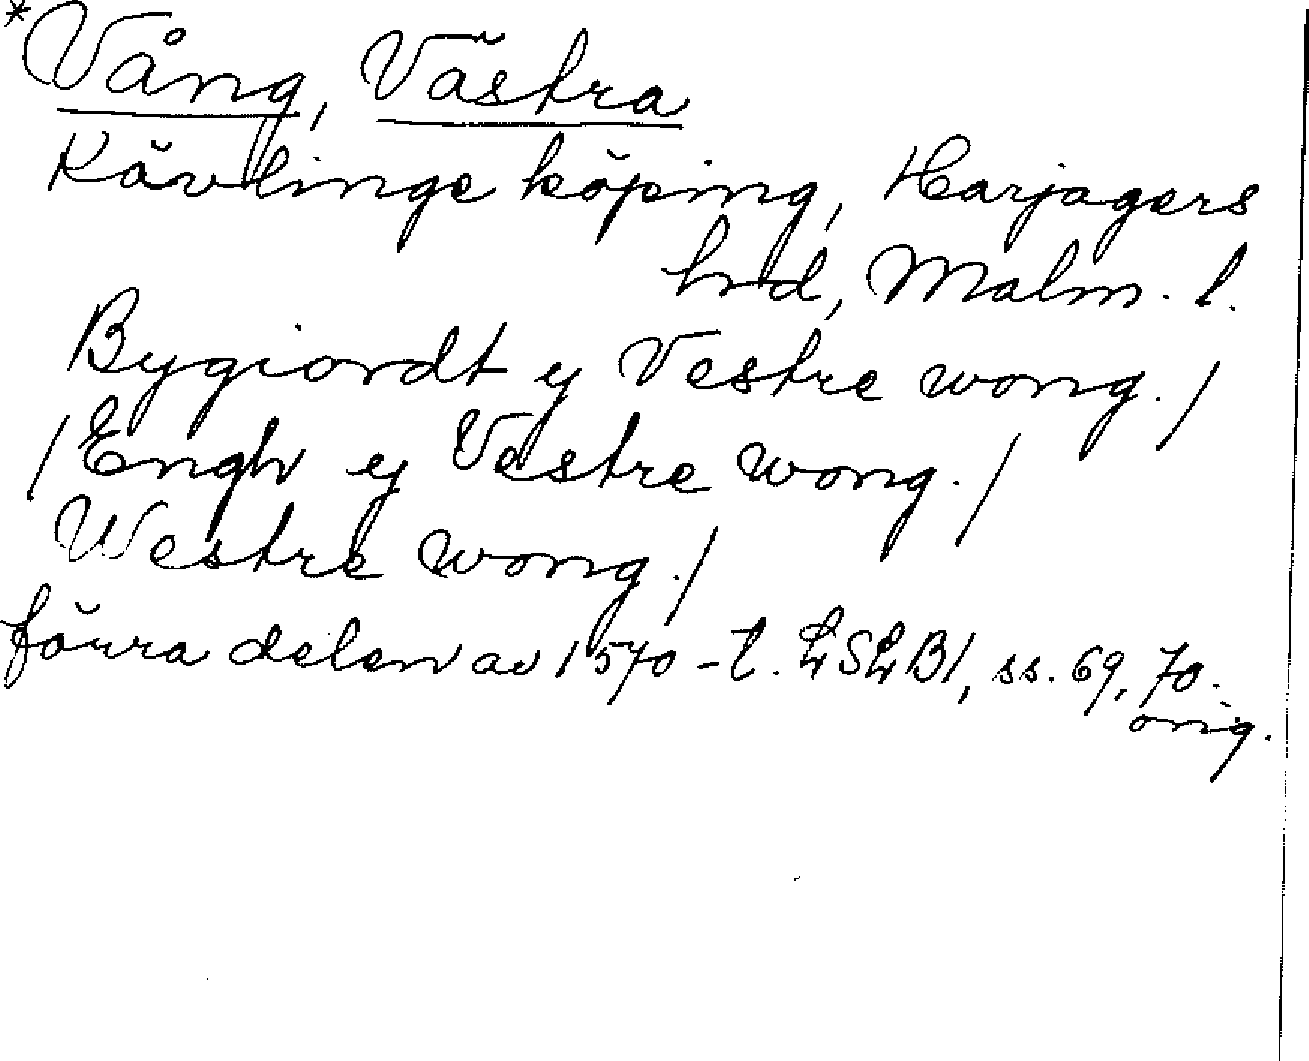 *Vång, Västra
Kävlinge köping, Harjagers
hrd, Malm. l.
Bygiordt y Vestre wong. /
/ Engh y Vestre wong. /
Westre wong. /
förra delen av 1570-t. LSLB1, ss. 69, 70.
orig.